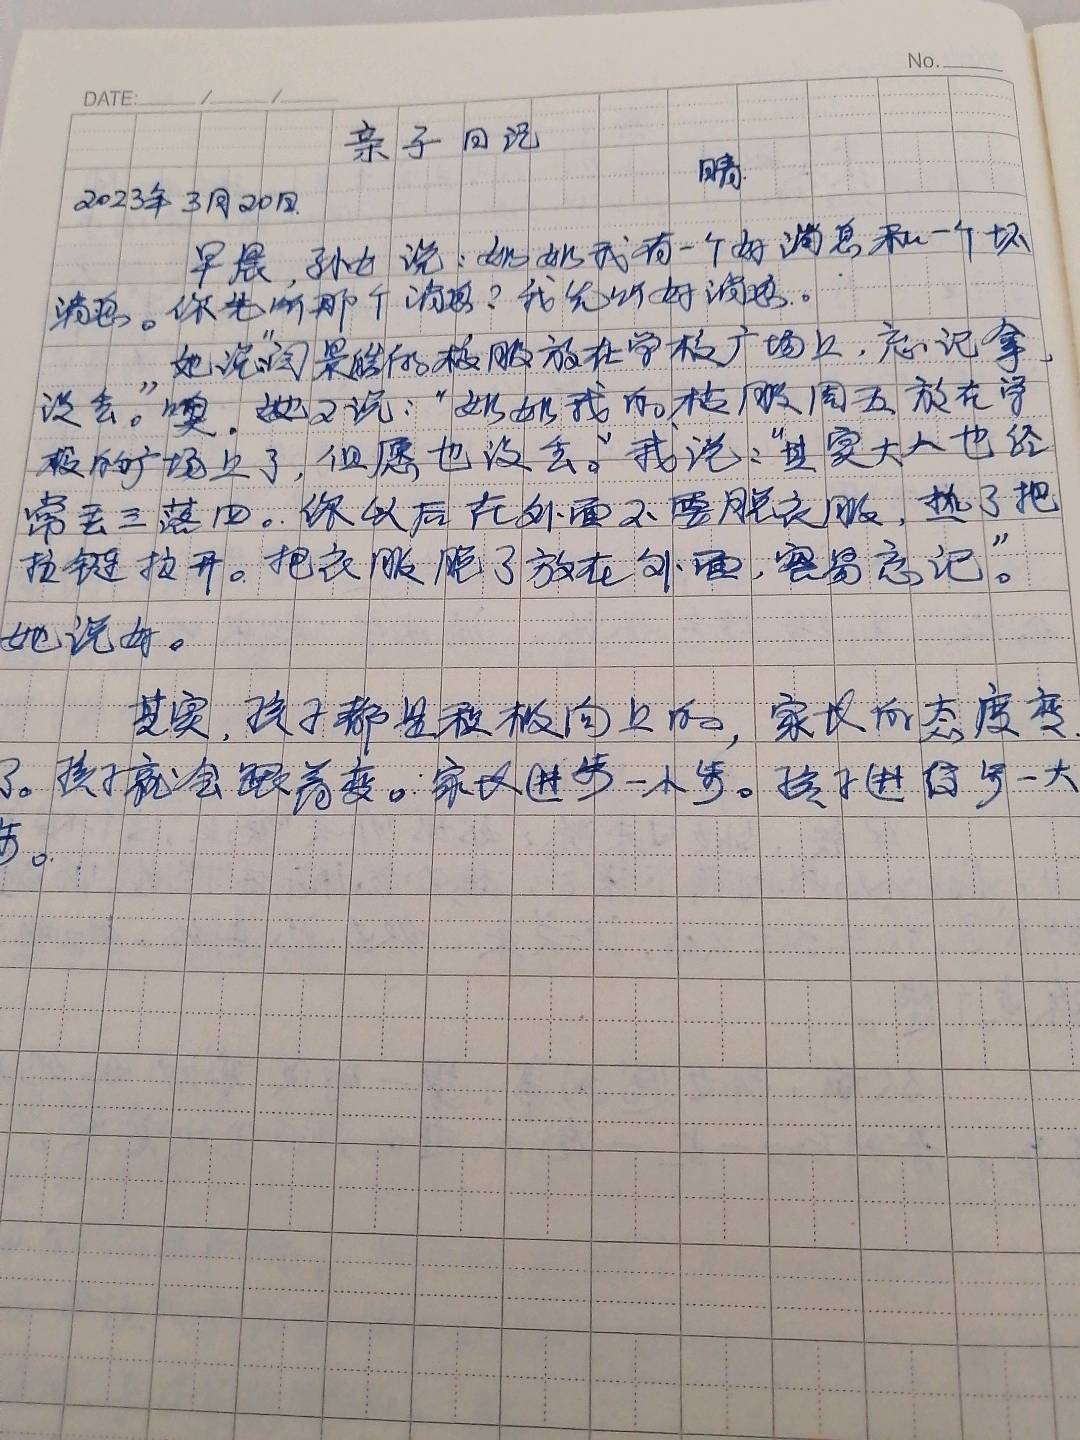 No.
DATE: / /
亲子日记
2023年3月20日 晴
早晨,孙女说:奶奶我有一个好消息和一个坏
消息。你先听那个消息?我先听好消息。
她说“闫景皓的校服放在学校广场上,忘记拿,
没丢。”噢,她又说:“奶奶我的校服周五放在学
校的广场上了,但愿也没丢。”我说:“其实大人也经
常丢三落四。你以后在外面不要脱衣服,热了把
拉链拉开。把衣服脱了放在外面,容易忘记”。
她说好。
其实,孩子都是积极向上的,家长的态度变
了。孩子就会跟着变。家长进步一小步。孩子进步一大
步。